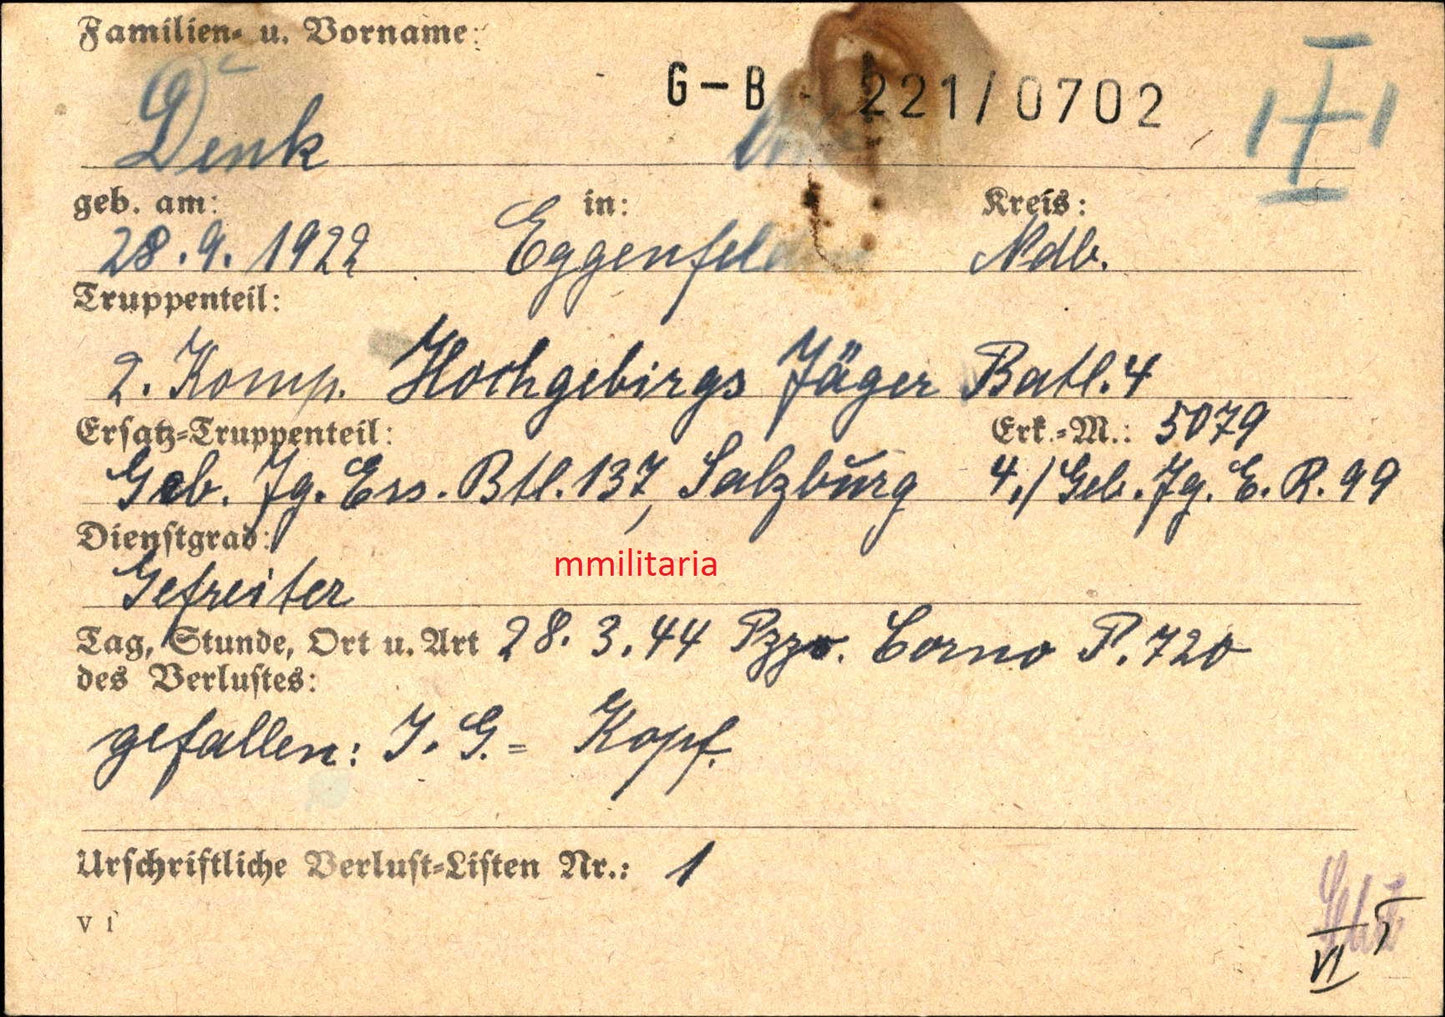 Familien- u. Vorname:
G-B 221/0702
Denk
geb. am: in: Kreis:
28.9.1922 Eggenfelden Ndb.
Truppenteil:
2. Komp. Hochgebirgs Jäger Batl. 4
Ersatz-Truppenteil: Erk.-M.: 5079
Geb. Jg. Ers. Btl. 137, Salzburg 4./Geb. Jg. E. R. 99
Dienstgrad:
mmilitaria
Gefreiter
Tag, Stunde, Ort u. Art 28. 3. 44 Pzzo. Corno P. 720
des Verlustes:
gefallen: I. G. = Kopf.
Urschriftliche Verlust-Listen Nr.: 1
V 1
VI